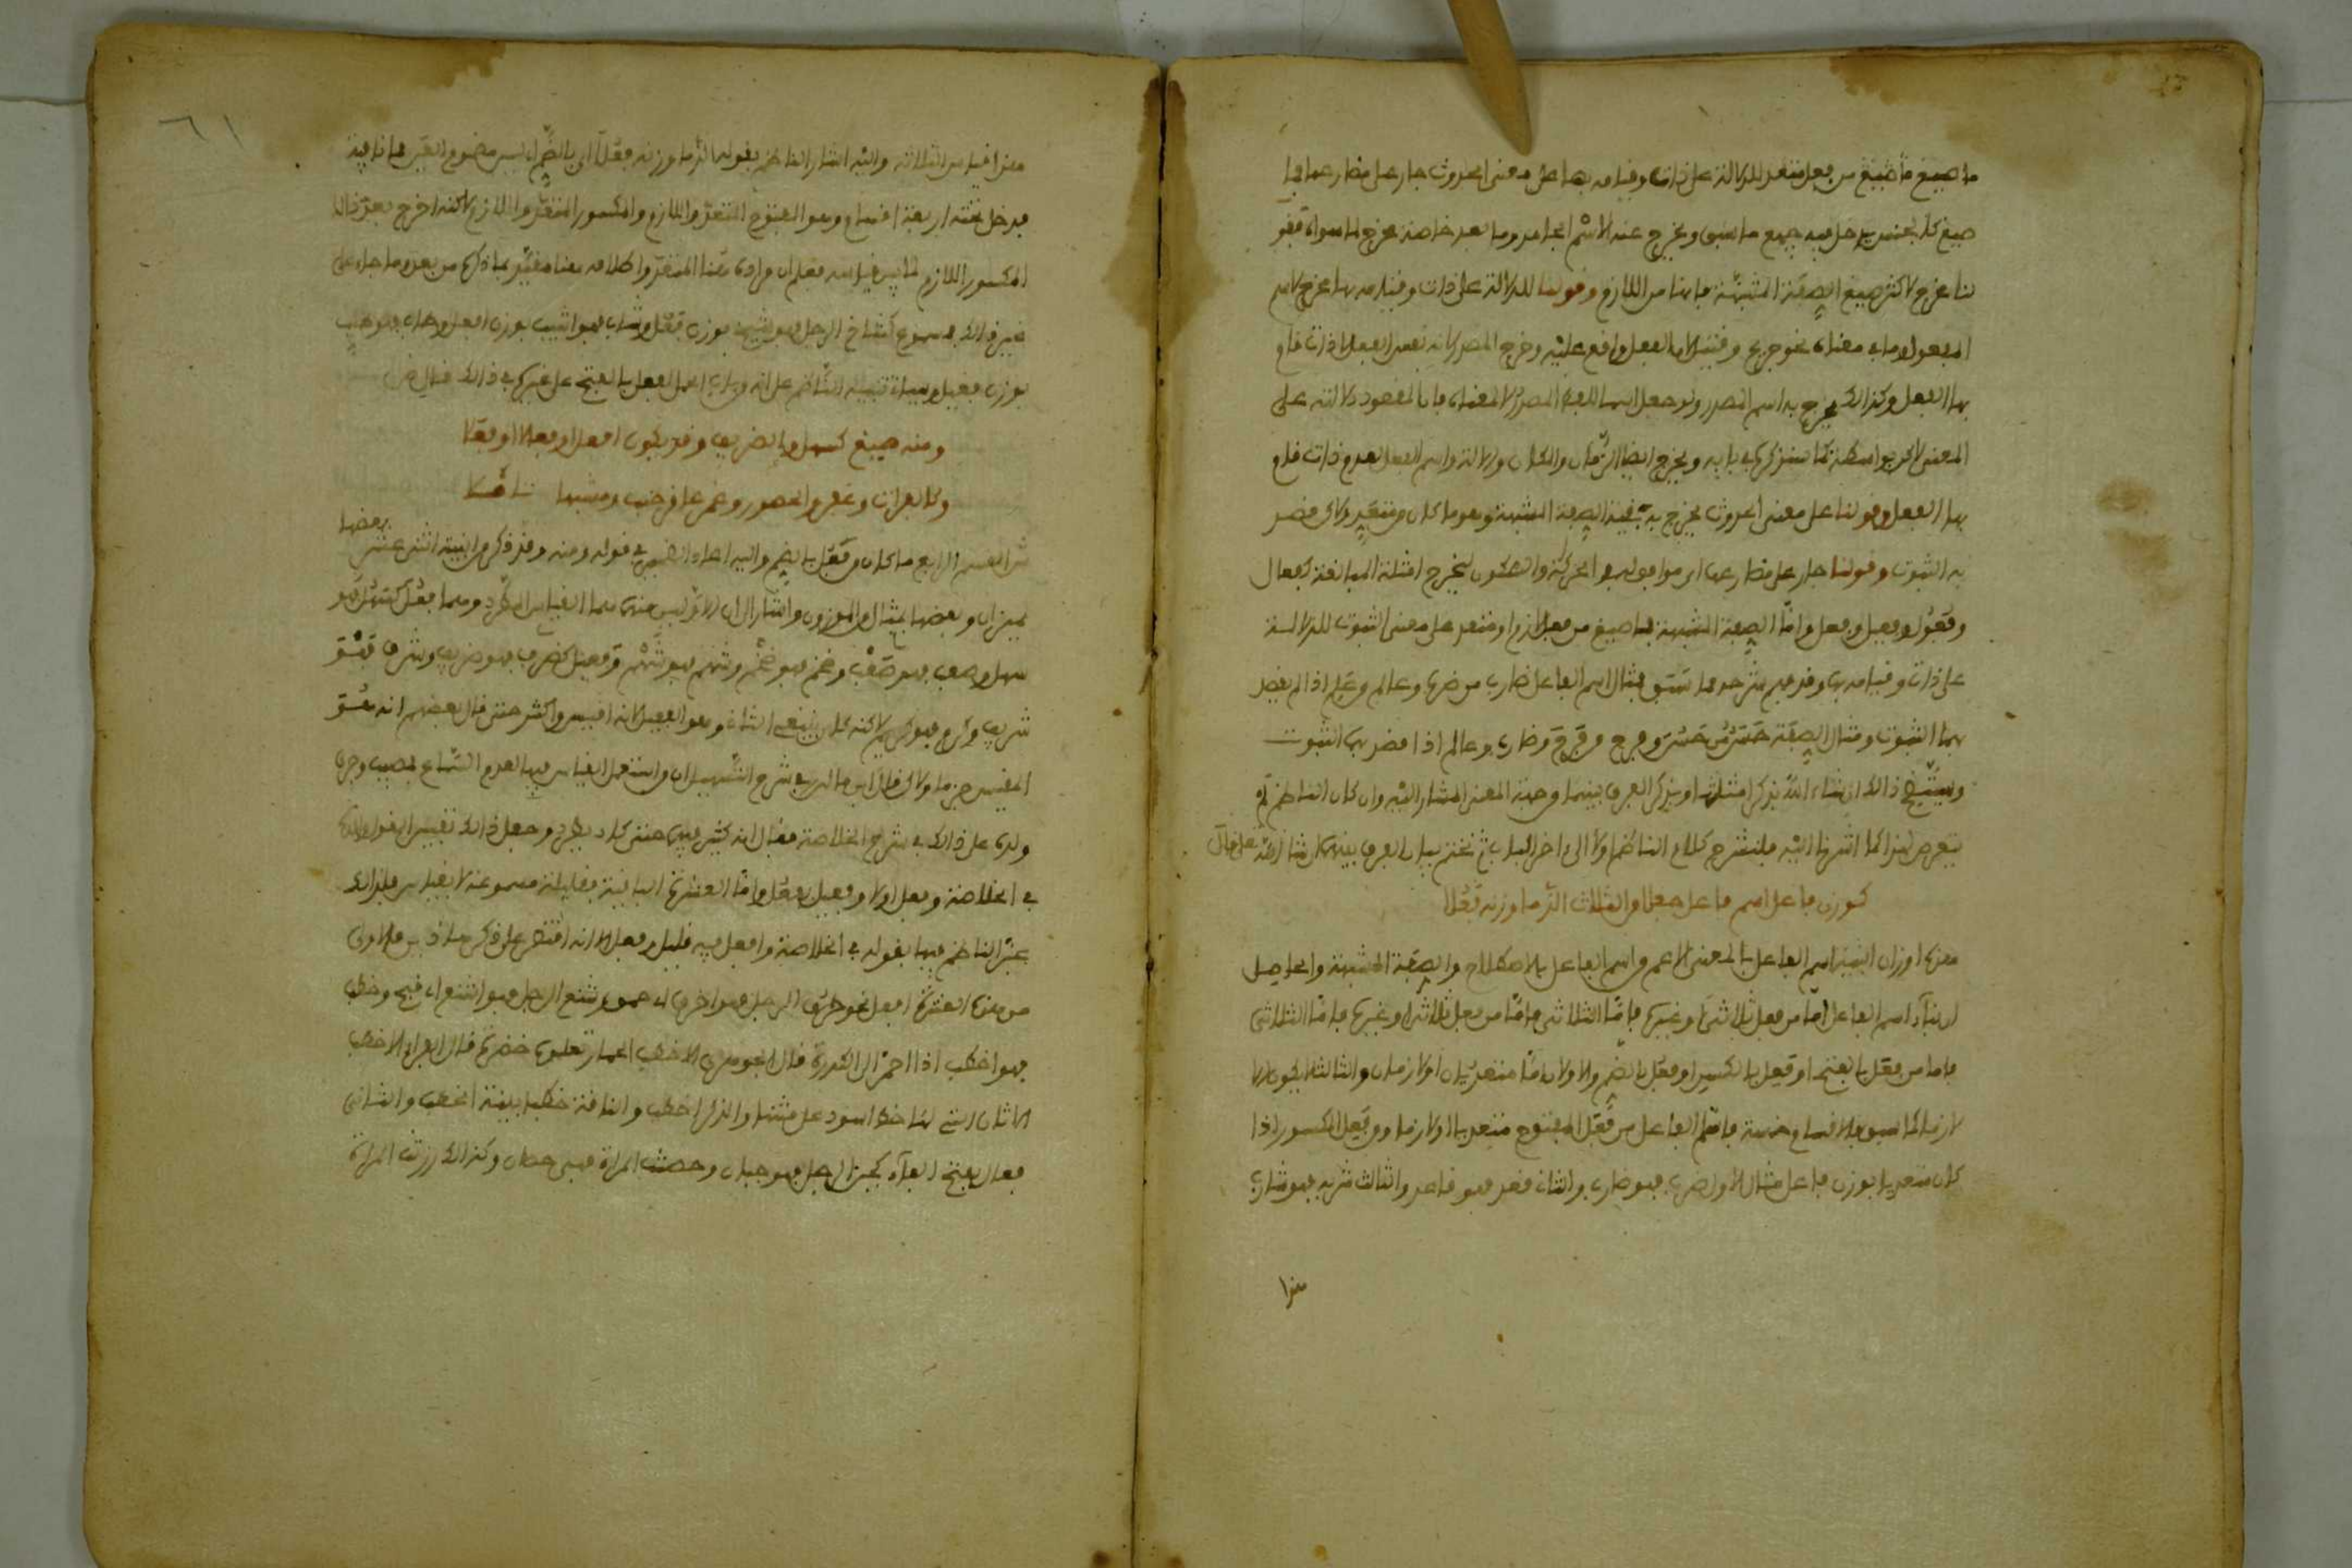 ما صيغ من فعل متعد للدلالة على ذات وقيامه بها على معنى الحدوث جار على مضارعها فما
صيغ كالجنس يدخل فيه جميع ما سبق ويخرج عنه الاسم الجامد وما بعد خاصة يخرج لما سواه فقو
لنا يخرج لاكثر صيغ الصفة المشبهة فانها من اللازم وقولنا للدلالة على ذات وقيامه بها يخرج لاسم
المفعول وما في معناه نحو جريح وقتيل لان الفعل واقع عليه وخرج المصدر لانه نفس الفعل لا ذات قام
بها الفعل وكذالك يخرج به اسم المصدر ولو جعل اسما للفظ المصدر لا لمعناه فان المقصود دلالته على
المعنى لاكن بواسطة كما سنذكره في بابه ويخرج ايضا الزمان والمكان ولالة واسم الفعل لعدم ذات قام
بها الفعل وقولنا على معنى الحدوث يخرج به بقية الصفة المشبهة وهو ما كان من متعد ولاكن قصد
به الثبوت وقولنا جار على مضارعها اي موافق له في الحركة والسكون ليخرج امثلة المبالغة كفعال
وفعول وفعيل وفعل واما الصفة المشبهة فما صيغ من فعل لازم او متعد على معنى الثبوت للدلالة
على ذات وقيامه بها وقد فهم شرحه مما سبق مثال اسم الفاعل ضارب من ضرب وعالم وعلم اذا لم يقصد
بهما الثبوت ومثال الصفة حسن من حسن وفرح من فرح وضارب وعالم اذا قصد بهما الثبوت
وسيتضح ذالك ان شاء الله بذكر امثلتها وبذكر الفرق بينهما من جهة المعنى المشار اليه وان كان الناظم لم
يتعرض لهذا كما اشرنا اليه فلنشرح كلام الناظم اولا الى اخر الباب ثم نختم ببيان الفرق بينهما ان شاء الله تعالى قال
كوزن فاعل اسم فاعل جعلا من الثلاث الذي ما وزنه فعلا
هذه اوزان ابنية اسم الفاعل بالمعنى الاعم من اسم الفاعل بالاصطلاح والصفة المشبهة والحاصل
ان بناء اسم الفاعل اما من فعل ثلاثي او غيره فاما الثلاثي
فاما من فعل بالفتح او فعل بالكسر او فعل بالضم والاولان اما متعديان او لازمان والثالث لا يكون الا
لازما كما سبق فالاقسام خمسة فاسم الفاعل من فعل المفتوح متعديا او لازما ومن فعل المكسور اذا
كان متعديا بوزن فاعل مثال الاول ضرب فهو ضارب والثاني قعد فهو قاعد والثالث شربه فهو شارب
هذا
٦١
هذا قياس الثلاثة واليه اشار الناظم بقوله الذي ما وزنه فعلا اي بالضم اي ليس مضموم العين فما نافية
فدخل تحته اربعة اقسام وهو المفتوح المتعد واللازم والمكسور المتعد واللازم لاكنه اخرج بعد ذالك
المكسور اللازم فعلم ان مراده هنا المتعد واطلاقه هنا مقيد بما ذكره من بعد وما جاء على
غير ذالك فمسموع كشاخ الرجل فهو شيخ بوزن فعل وشاب فهو اشيب بوزن افعل وطاب فهو طيب
بوزن فيعل وسياتي تنبيه الناظم على انه
ومنه صيغ كسهل والظريف وقد يكون افعل او فعالا او فعلا
وكالفرات وعفر والحصور وغمر عاقر جنب ومشبها ثملا
هذا القسم الرابع ما كان من فعل بالضم واليه اعاد الضمير في قوله ومنه وقد ذكر من ابنيته اثني عشر بعضها
بميزان وبعضها بمثال من الموزون واشار الى ان الاولين منها هما القياس المطرد وهما فعل كسهل فهو
سهل وصعب فهو صعب وضخم فهو ضخم وشهم فهو شهم وفعيل كظرف فهو ظريف وشرف فهو
شريف وكرم فهو كريم لاكنه كان ينبغي الثاني وهو الفعيل لانه اقيس واكثر حتى قال بعضهم انه هو
المقيس جزما ولاكن قال ابن مالك في شرح التسهيل ان من استعمل القياس فيهما لعدم السماع فمصيب وجرى
ولده على ذالك في شرح الخلاصة فقال انه كثير فيه حتى كاد يطرد وجعل ذالك تفسيرا لقول والده
في الخلاصة وفعل اولى وفعيل بفعل واما العشرة الباقية فقليلة مسموعة لا يقاس عليها ولذالك
عبر الناظم فيها بقوله في الخلاصة وافعل فيه قليل وفعل الا انه اقتصر على ذكر هاذين فالاول
من هذه العشرة افعل نحو خرق الرجل فهو اخرق اي حمق وشنع الرجل فهو اشنع اي قبح وخطب
فهو اخطب اذا احمر الى الكدرة قال الجوهري الاخطب الحمار تعلوه خضرة قال الفراء الاخطب
الاتان التي لها خط اسود على متنها والذكر اخطب وناقة خطباء بينة الخطب والثاني
فعال بفتح الفاء كجبن الرجل فهو جبان وحصنت المراة فهي حصان وكذالك رزنت المراة